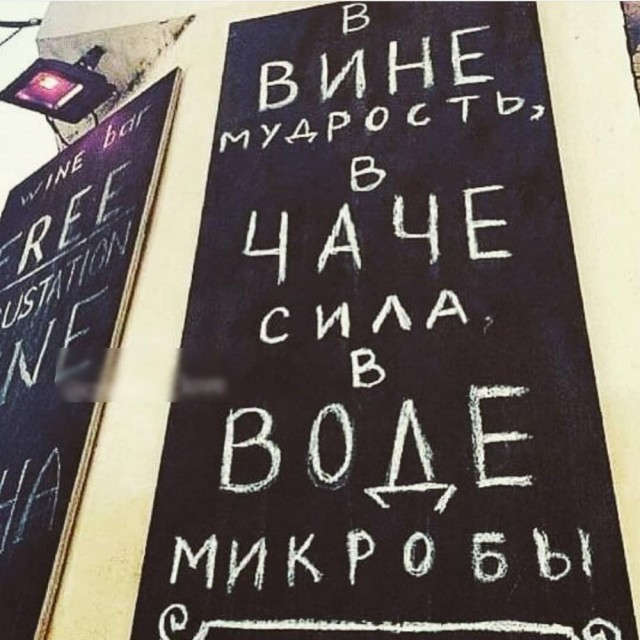 WINE bar
FREE
USTATION
INE
HA
В
ВИНЕ
МУДРОСТЬ,
В
ЧАЧЕ
СИЛА,
В
ВОДЕ
МИКРОБЫ